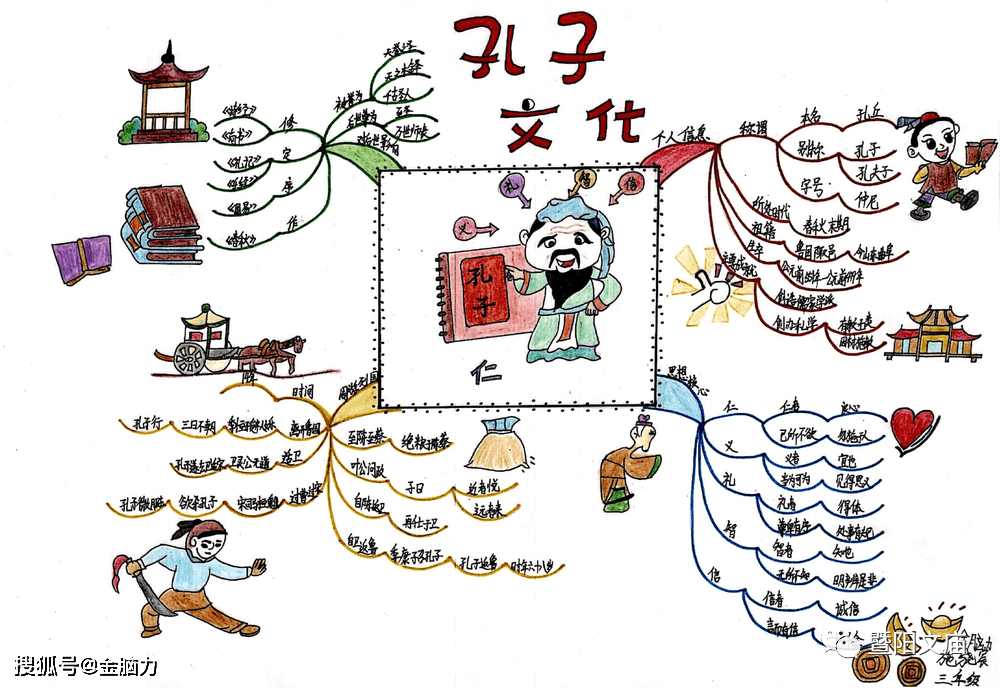 孔子
文化
个人信息
称谓
本名
孔丘
别称
孔子
孔夫子
字号
仲尼
所处时代
春秋末期
祖籍
鲁国陬邑
今山东曲阜
生卒
主要成就
创造儒家学派
创办私学
有教无类
因材施教
思想核心
仁
仁者
爱心
己所不欲
勿施于人
义
义者
宜也
当为可为
见得思义
礼
礼者
得体
尊卑有序
处事有规
智
智者
知也
无所不知
明辨是非
信
信者
诚信
言而有信
周游列国
时间
离开鲁国
三日不朝
孔子行
造卫
卫灵公无道
过曹过宋
宋司马桓魋
欲杀孔子
孔子微服去
至陈至蔡
绝粮于陈蔡
叶公问政
子曰
近者悦
远者来
自陈返卫
再仕于卫
自卫返鲁
季康子召孔子
孔子返鲁
时年六十八岁
对后世影响
被誉为
天纵之圣
天之木铎
千古圣人
后世尊为
至圣
万世师表
修
《诗经》
《尚书》
定
《礼记》
《乐经》
序
《周易》
作
《春秋》
礼
智
信
义
孔
子
仁
三年级
暨阳文庙
搜狐号@金脑力